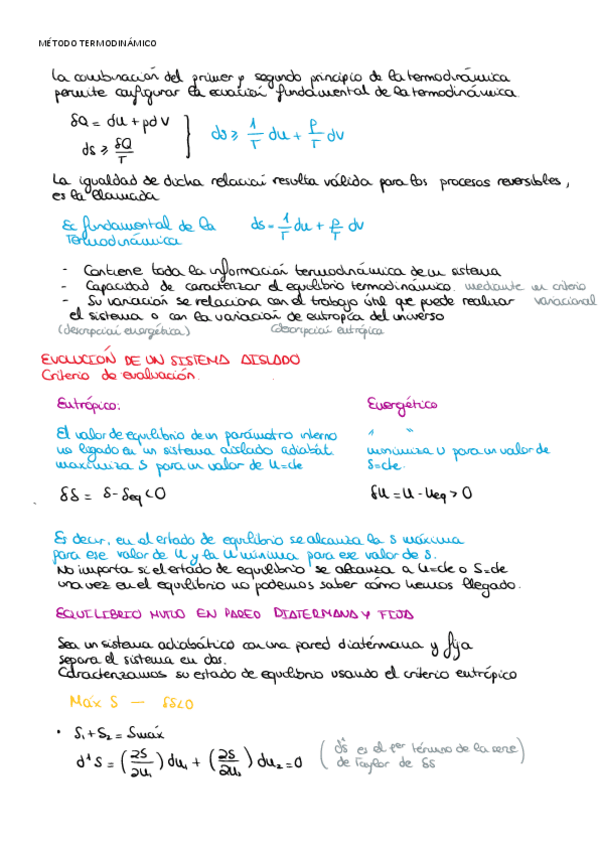 MÉTODO TERMODINÁMICO
La combinación del primer y segundo principio de la termodinámica
permite configurar la ecuación fundamental de la termodinámica.
δQ = dU + pdV
ds ≥ δQ/T
ds ≥ 1/T du + P/T dv
La igualdad de dicha relación resulta válida para los procesos reversibles,
es la llamada
Ec fundamental de la
Termodinámica
ds = 1/T du + P/T dv
- Contiene toda la información termodinámica de un sistema
- Capacidad de caracterizar el equilibrio termodinámico. mediante un criterio
variacional
- Su variación se relaciona con el trabajo útil que puede realizar
el sistema o con la variación de entropía del universo
(descripción energética) (descripción entrópica
EVOLUCIÓN DE UN SISTEMA AISLADO
Criterio de evaluación.
Entrópico:
El valor de equilibrio de un parámetro interno
no ligado en un sistema aislado adiabát.
maximiza S para un valor de U=cte
δS = S - Seq < 0
Energético
" "
minimiza U para un valor de
S=cte.
δU = U - Ueq > 0
Es decir, en el estado de equilibrio se alcanza la S máxima
para ese valor de U y la U mínima para ese valor de S.
No importa si el estado de equilibrio se alcanza a U=cte o S=cte
una vez en el equilibrio no podemos saber cómo hemos llegado.
EQUILIBRIO MUTUO EN PARED DIATERMANA Y FIJA
Sea un sistema adiabático con una pared diatérmana y fija
separa el sistema en dos.
Caracterizamos su estado de equilibrio usando el criterio entrópico
Máx S — δS<0
• S₁ + S₂ = Smáx
d¹S = (∂S/∂U₁) du₁ + (∂S/∂U₂) du₂ = 0
(d¹S es el 1er término de la serie
de Taylor de δS)